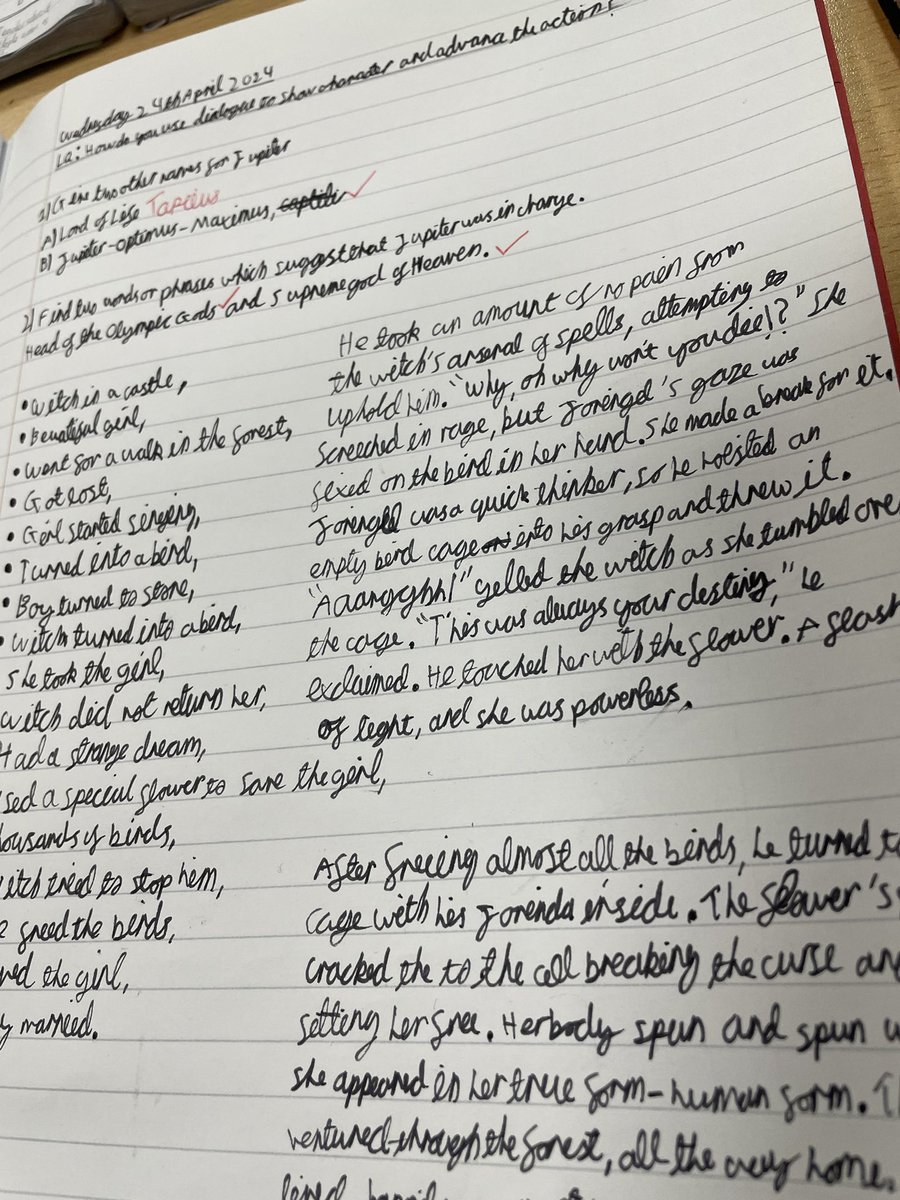 Wednesday 24th April 2024
LQ: How do you use dialogue to show character and advance the action?
1) Give two other names for Jupiter
A) Lord of Life Tapitus
B) Jupiter-Optimus-Maximus,
2) Find two words or phrases which suggest that Jupiter was in charge.
Head of the Olympic Gods and supreme god of Heaven.
• Witch in a castle,
• Beuatiful girl,
• Went for a walk in the forest,
• Got lost,
• Girl started singing,
• Turned into a bird,
• Boy turned to stone,
• Witch turned into a bird,
She took the girl,
witch did not return her,
Had a strange dream,
sed a special flower to save the girl,
housands of birds,
witch tried to stop him,
freed the birds,
the girl,
y married.
He took an amount of no pain from
the witch's arsenal of spells, attempting to
uphold him. "Why, oh why won't you die!?" She
screeched in rage, but Joringel's gaze was
fixed on the bird in her hand. She made a break for it.
Joringel was a quick thinker, so he hoisted an
empty bird cage into his grasp and threw it.
"Aaarrgghh!" yelled the witch as she tumbled over
the cage. "This was always your destiny," he
exclaimed. He touched her with the flower. A flash
of light, and she was powerless.
After freeing almost all the birds, he turned to
cage with his Jorinda inside. The flower's
cracked the to the cell breaking the curse and
setting her free. Her body spun and spun
she appeared in her true form-human form. T
ventured through the forest, all the way home.
lived